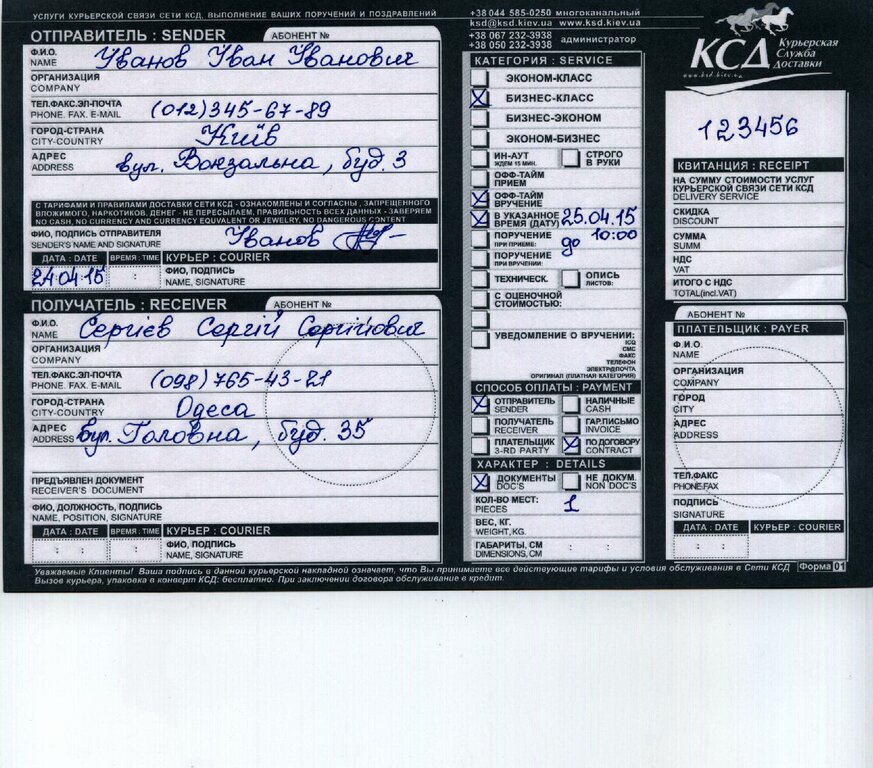 УСЛУГИ КУРЬЕРСКОЙ СВЯЗИ СЕТИ КСД, ВЫПОЛНЕНИЕ ВАШИХ ПОРУЧЕНИЙ И ПОЗДРАВЛЕНИЙ
ОТПРАВИТЕЛЬ : SENDER АБОНЕНТ №
Ф.И.О. Іванов Іван Іванович
NAME
ОРГАНИЗАЦИЯ
COMPANY
ТЕЛ.ФАКС.ЭЛ-ПОЧТА (012)345-67-89
PHONE. FAX. E-MAIL
ГОРОД-СТРАНА Київ
CITY-COUNTRY
АДРЕС вул. Вокзальна, буд. 3
ADDRESS
С ТАРИФАМИ И ПРАВИЛАМИ ДОСТАВКИ СЕТИ КСД - ОЗНАКОМЛЕНЫ И СОГЛАСНЫ, ЗАПРЕЩЕННОГО
ВЛОЖИМОГО, НАРКОТИКОВ, ДЕНЕГ - НЕ ПЕРЕСЫЛАЕМ, ПРАВИЛЬНОСТЬ ВСЕХ ДАННЫХ - ЗАВЕРЯЕМ
NO CASH, NO CURRENCY AND CURRENCY EQUVALENT OR JEWELRY, NO DANGEROUS CONTENT
ФИО, ПОДПИСЬ ОТПРАВИТЕЛЯ Іванов
SENDER'S NAME AND SIGNATURE
ДАТА : DATE ВРЕМЯ : TIME КУРЬЕР : COURIER
24 04 15 : ФИО, ПОДПИСЬ
NAME, SIGNATURE
ПОЛУЧАТЕЛЬ : RECEIVER АБОНЕНТ №
Ф.И.О. Сергієв Сергій Сергійович
NAME
ОРГАНИЗАЦИЯ
COMPANY
ТЕЛ.ФАКС.ЭЛ-ПОЧТА (098)765-43-21
PHONE. FAX. E-MAIL
ГОРОД-СТРАНА Одеса
CITY-COUNTRY
АДРЕС вул. Головна, буд. 35
ADDRESS
ПРЕДЪЯВЛЕН ДОКУМЕНТ
RECEIVER'S DOCUMENT
ФИО, ДОЛЖНОСТЬ, ПОДПИСЬ
NAME, POSITION, SIGNATURE
ДАТА : DATE ВРЕМЯ : TIME КУРЬЕР : COURIER
: : : ФИО, ПОДПИСЬ
NAME, SIGNATURE
+38 044 585-0250 многоканальный
ksd@ksd.kiev.ua www.ksd.kiev.ua
+38 067 232-3938
+38 050 232-3938 администратор
КАТЕГОРИЯ : SERVICE
ЭКОНОМ-КЛАСС
X БИЗНЕС-КЛАСС
БИЗНЕС-ЭКОНОМ
ЭКОНОМ-БИЗНЕС
ИН-АУТ СТРОГО
ЖДЕМ 15 МИН. В РУКИ
ОФФ-ТАЙМ
ПРИЕМ
X ОФФ-ТАЙМ
ВРУЧЕНИЕ
X В УКАЗАННОЕ 25.04.15
ВРЕМЯ (ДАТУ) до 10:00
ПОРУЧЕНИЕ
ПРИ ПРИЕМЕ:
ПОРУЧЕНИЕ
ПРИ ВРУЧЕНИИ:
ТЕХНИЧЕСК. ОПИСЬ
ЛИСТОВ:
С ОЦЕНОЧНОЙ
СТОИМОСТЬЮ:
УВЕДОМЛЕНИЕ О ВРУЧЕНИИ:
ICQ
СМС
ФАКС
ТЕЛЕФОН
ЭЛЕКТР/ПОЧТА
ОРИГИНАЛ (ПЛАТНАЯ КАТЕГОРИЯ)
СПОСОБ ОПЛАТЫ : PAYMENT
X ОТПРАВИТЕЛЬ НАЛИЧНЫЕ
SENDER CASH
ПОЛУЧАТЕЛЬ ГАР.ПИСЬМО
RECEIVER INVOICE
ПЛАТЕЛЬЩИК X ПО ДОГОВОРУ
3-RD PARTY CONTRACT
ХАРАКТЕР : DETAILS
X ДОКУМЕНТЫ НЕ ДОКУМ.
DOC'S NON DOC'S
КОЛ-ВО МЕСТ: 1
PIECES
ВЕС, КГ.
WEIGHT, KG.
ГАБАРИТЫ, СМ : :
DIMENSIONS, CM
КСД Курьерская
Служба
Доставки
www.ksd.kiev.ua
123456
КВИТАНЦИЯ : RECEIPT
НА СУММУ СТОИМОСТИ УСЛУГ
КУРЬЕРСКОЙ СВЯЗИ СЕТИ КСД
DELIVERY SERVICE
СКИДКА
DISCOUNT
СУММА
SUMM
НДС
VAT
ИТОГО С НДС
TOTAL(incl.VAT)
АБОНЕНТ №
ПЛАТЕЛЬЩИК : PAYER
Ф.И.О.
NAME
ОРГАНИЗАЦИЯ
COMPANY
ГОРОД
CITY
АДРЕС
ADDRESS
ТЕЛ.ФАКС
PHONE.FAX
ПОДПИСЬ
SIGNATURE
ДАТА : DATE КУРЬЕР : COURIER
: :
Уважаемые Клиенты! Ваша подпись в данной курьерской накладной означает, что Вы принимаете все действующие тарифы и условия обслуживания в Сети КСД Форма 01
Вызов курьера, упаковка в конверт КСД: бесплатно. При заключении договора обслуживание в кредит.